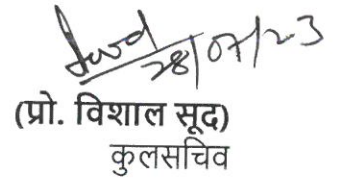 Sood
28/07/23
(प्रो. विशाल सूद)
कुलसचिव